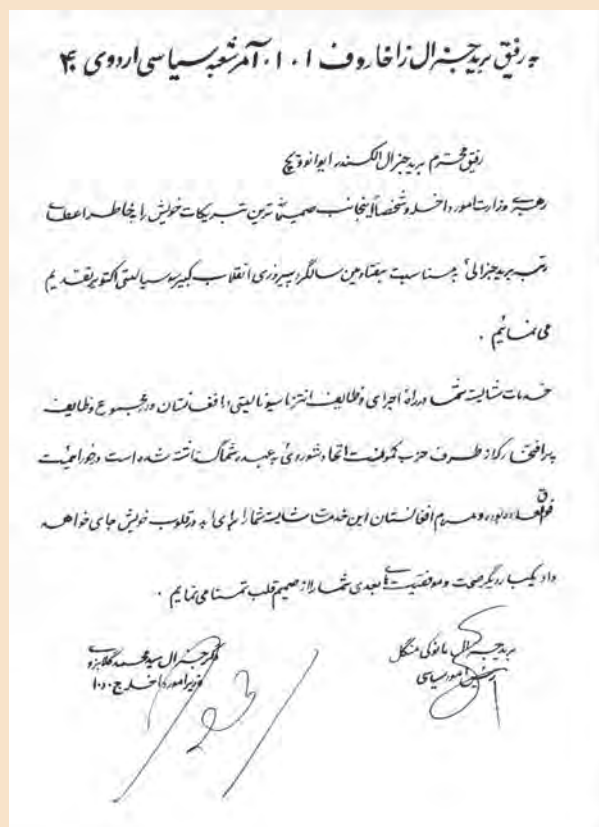 به رفیق بریدجنرال زاخاروف ا . ا . آمر شعبه سیاسی اردوی ۴۰
رفیق محترم بریدجنرال الکسندر ایوانوویچ
رهبری وزارت امور داخله و شخصاً اینجانب صمیمی ترین تبریکات خویش را بخاطر اعطای
رتبه بریدجنرالی به مناسبت هفتادمین سالگرد پیروزی انقلاب کبیر سوسیالیستی اکتوبر تقدیم
می نمائیم .
خدمات شایسته شما در راه اجرای وظایف انترناسیونالیستی در افغانستان و مجموع وظایف
پرافتخاری که از طرف حزب کمونیست اتحاد شوروی به عهده شما گذاشته شده است درخور اهمیت
فوق العاده بوده و مردم افغانستان این خدمت شایسته شما را برای ابد در قلوب خویش جای خواهد
داد یکبار دیگر صحت و موفقیت های بعدی شما را از صمیم قلب تمنا می نمایم .
بریدجنرال مانوکی منگل
رئیس امور سیاسی
دگرجنرال سید محمد گلابزوی
وزیر امور داخله ج.د.ا